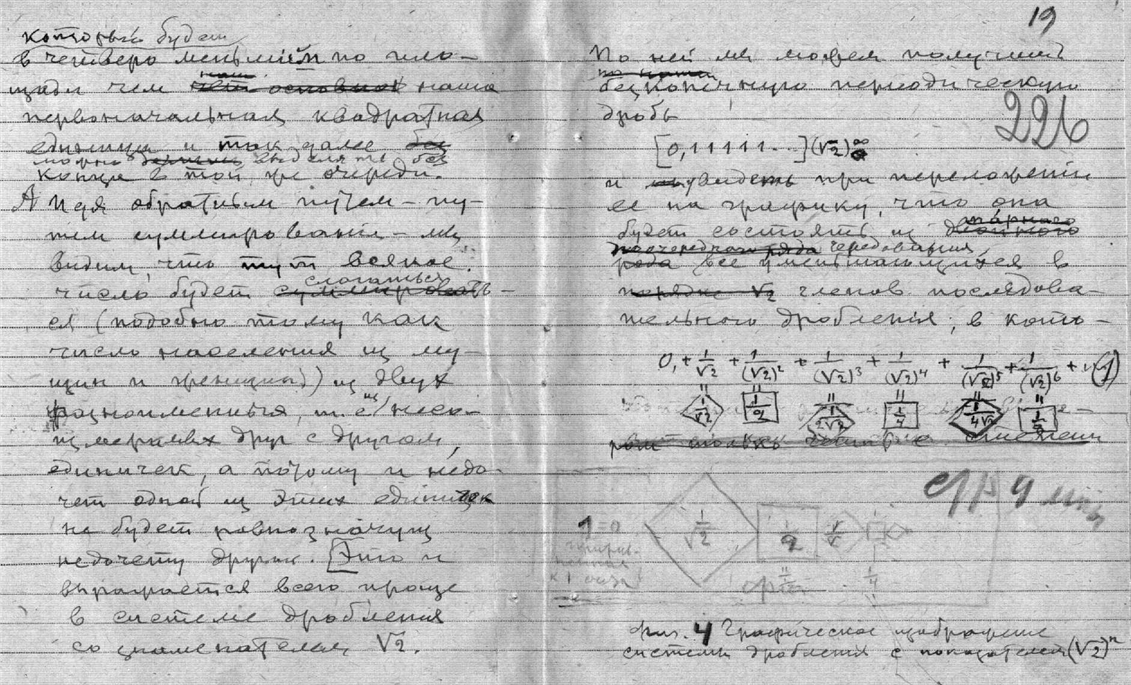 который будет
в четверо меньшим по пло-
щади чем наша
первоначальная квадратная
единица и так далее
можно выделять без
конца в той же очереди.
А идя обратным путем – пу-
тем суммирования – мы
видим, что всякое
число будет слагаться
ся (подобно тому как
число населения из му-
щин и женщин)) из двух
разноименных, т.е. несо-
измеримых друг с другом,
единичек, а потому и недо-
чет одной из этих единичек
не будет равнозначущ
недочету других. [Это и
выражается всего проще
в системе дробления
со знаменателем √2.
19
По ней мы можем получить
безконечную периодическую
дробь
226
[0,11111...](√2)∞
и увидеть при переложении
ее на графику, что она
будет состоять из парного
чередования
ряда все уменьшающихся в
порядке √2 членов последова-
тельного дробления, в кото-
0,+ 1/√2 + 1/(√2)² + 1/(√2)³ + 1/(√2)⁴ + 1/(√2)⁵ + 1/(√2)⁶ +
1/√2 1/2 1/2√2 1/4 1/4√2 1/8
фиг 4
1=0
1/√2 1/2
1/4
фиг. 4 Графическое изображение
системы дробления с показателем (√2)ⁿ